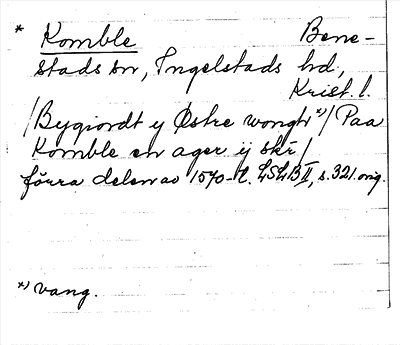 * Komble Bene-
stads sn, Ingelstads hd,
Krist. l.
/Bygiordt y Østre wongh *)/ Paa
Komble en ager ij skr/
förra delen av 1570-t. LSLB II, s. 321. orig.
*) vang.